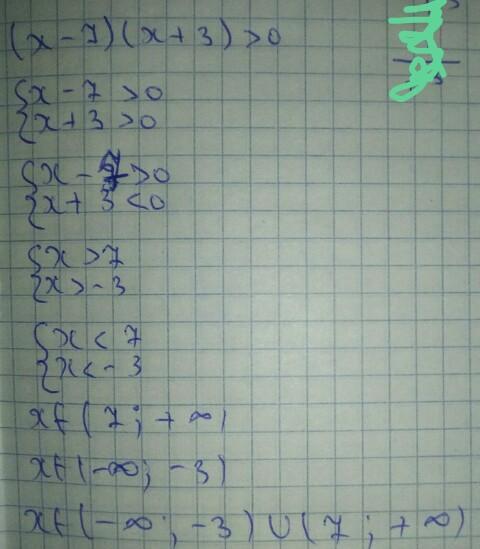 (x - 7)(x + 3) > 0
{x - 7 > 0
{x + 3 > 0
{x - 7 > 0
{x + 3 < 0
{x > 7
{x > - 3
{x < 7
{x < - 3
x ∈ (7; + ∞)
x ∈ (-∞; -3)
x ∈ (-∞; -3) ∪ (7; +∞)